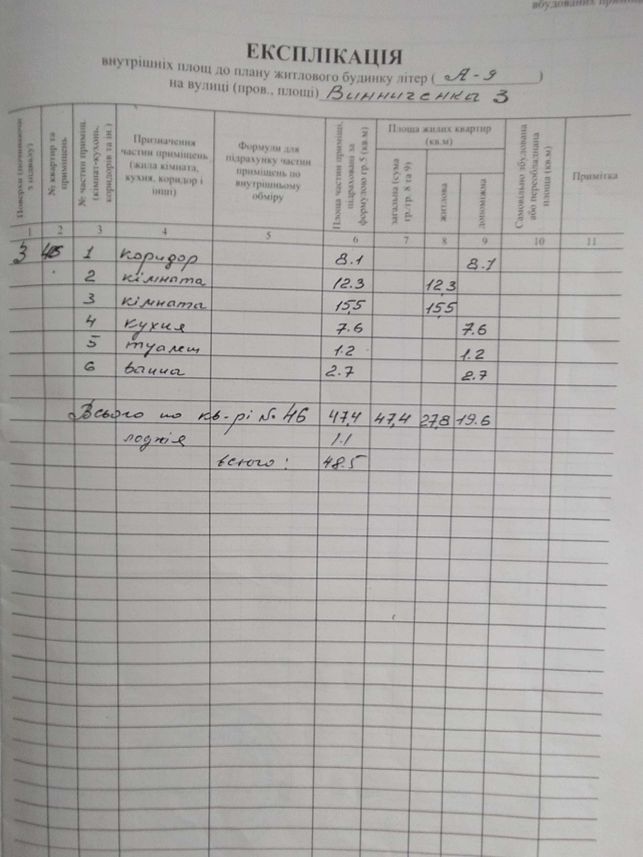 вбудованих приміщ
ЕКСПЛІКАЦІЯ
внутрішніх площ до плану житлового будинку літер ( А-9 )
на вулиці (пров., площі) Винниченка 3
Поверхи (починаючи з підвалу)
№ квартир та приміщень
№ частин приміщ. (кімнат-кухонь, коридорів та ін.)
Призначення частин приміщень (жила кімната, кухня, коридор і інші)
Формули для підрахунку частин приміщень по внутрішньому обміру
Площа частин приміщ. підрахована за формулою гр.5 (кв.м)
Площа жилих квартир (кв.м)
загальна (сума гр./гр. 8 та 9)
житлова
допоміжна
Самовільно збудована або переобладнана площа (кв.м)
Примітка
1 2 3 4 5 6 7 8 9 10 11
3 46 1 коридор 8.1 8.1
2 кімната 12.3 12.3
3 кімната 15,5 15,5
4 кухня 7.6 7.6
5 туалет 1.2 1.2
6 ванна 2.7 2.7
Всього по кв-рі № 46 47,4 47,4 27,8 19.6
лоджія 1.1
всього: 48.5